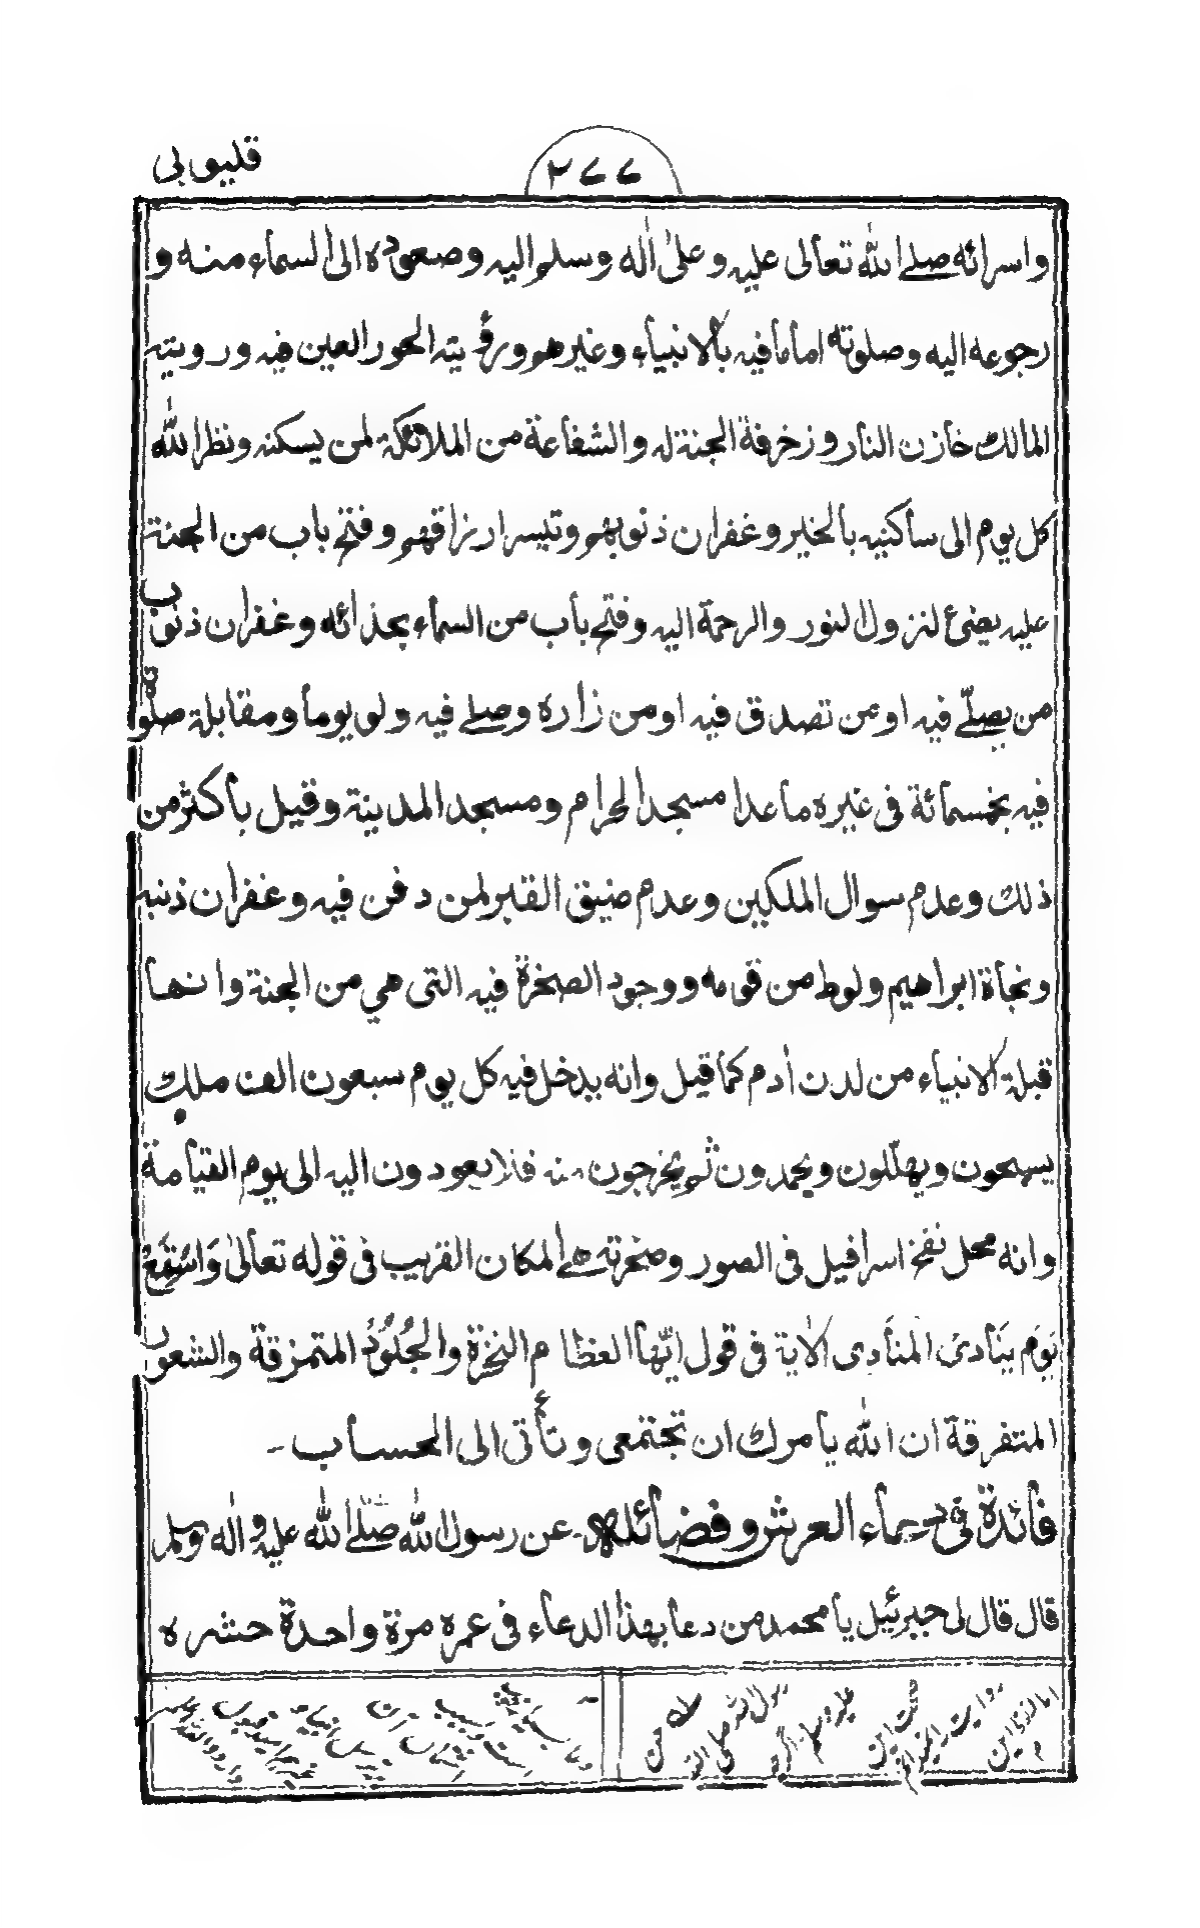 قليوبى
٢٧٧
واسرائه صلے الله تعالى عليه وعلىٰ اٰله وسلم اليه وصعوده الى السماء منه و
رجوعه اليه وصلوته اماما فيه بالانبياء وغيرهم ورؤيته الحور العين فيه ورويته
المالك خازن النار وزخرفة الجنة له والشفاعة من الملائكة لمن يسكنه ونظر الله
كل يوم الى ساكنيه بالخير وغفران ذنوبهم وتيسر ارزاقهم وفتح باب من الجنة
عليه يضئ لنزول النور والرحمة اليه وفتح باب من السماء بحذائه وغفران ذنوب
من يصلّے فيه او من تصدق فيه او من زاره وصلے فيه ولو يوما ومقابلة صلوة
فيه بخمسمائة فى غيره ماعدا مسجد الحرام ومسجد المدينة وقيل باكثر من
ذلك وعدم سوال الملكين وعدم ضيق القبر لمن دفن فيه وغفران ذنبه
ونجاة ابراهيم ولوط من قومه ووجود الصخرة فيه التى هي من الجنة وانها
قبلة الانبياء من لدن اٰدم كما قيل وانه يدخل فيه كل يوم سبعون الف ملك
يسبحون ويهللون ويحمدون ثم يخرجون منه فلا يعودون اليه الى يوم القيامة
وانه محل نفخ اسرافيل فى الصور وصخرته هے المكان القريب فى قوله تعالىٰ وَاسْتَمِعْ
يَوْمَ يُنَادِى الْمُنَادِى الاٰية فى قول ايّها العظام النخرة والجُلُوْدُ المتمزقة والشعور
المتفرقة ان الله يامرك ان تجتمعى وتأتى الى الحساب -
فائدة فى دعاء العرش وفضائله- عن رسول الله صلّے الله عليه واٰله وسلم
قال قال لى جبرئيل يا محمد من دعا بهذا الدعاء فى عمره مرة واحدة حشره